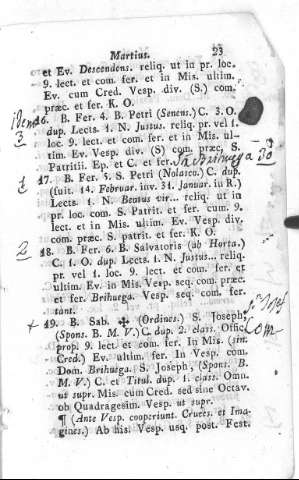 Martius. 23
et Ev. Descendens. reliq. ut in pr. loc.
9. lect. et com. fer. et in Mis. ultim.
Ev. cum Cred. Vesp. div. (S.) com.
præc. et fer. K. O.
16. B. Fer. 4. B. Petri (Senens.) C. 3. O.
dup. Lects. 1. N. Justus. reliq. pr. vel 1.
loc. 9. lect. et com. fer. et in Mis. ul-
tim. Ev. Vesp. div. (S) com. præc, S.
Patritii. Ep. et C. et fer.
17. B. Fer. 5. S. Petri (Nolasco.) C. dup.
(fuit. 14. Februar. inv. 31. Januar. in R.)
Lects. 1. N. Beatus vir... reliq. ut in
pr. loc. com. S. Patrit. et fer. cum 9.
lect. et com. fer. et in Mis. ultim. Ev. Vesp. div.
com. præc. S. patrit. et fer. K. O.
18. B. Fer. 6. B. Salvatoris (ab Horta.)
C. 1. O. dup. Lects. 1. N. Justus... reliq.
pr. vel 1. loc. 9. lect. et com. fer. et
ultim. Ev. in Mis. Vesp. seq. com. præc.
et fer. Brihuega. Vesp. seq. com. fer.
tant.
+ 19. B. Sab. ✠ (Ordines.) S. Joseph
(Spons. B. M. V.) C. dup. 2. class. Offic.
prop. 9. lect. et com. fer. In Mis. (sin.
Cred.) Ev. ultim. fer. In Vesp. com.
Dom. Brihuega. S. Joseph, (Spons. B.
M. V.) C. et Titul. dup. 1. class. Omn.
ut supr. Mis. cum Cred. sed sine Octav.
ob Quadragesim. Vesp. ut supr.
¶ (Ante Vesp. cooperiunt. Cruces. et Ima-
gines.) Ab his. Vesp. usq. post. Fest.
3
1
2